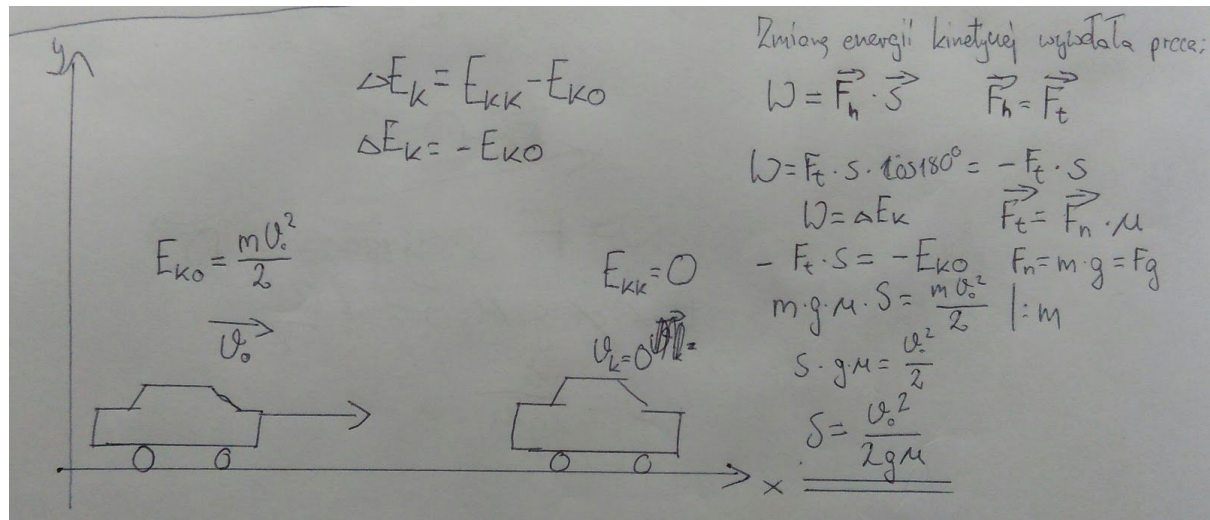 y
ΔE_K = E_KK - E_K0
ΔE_K = - E_K0
E_K0 = mv₀²/2
v₀→
E_KK = 0
v_k = 0
x
Zmianę energii kinetycznej wywołała praca:
W = F_h→ · s→    F_h→ = F_t→
W = F_t · s · cos180° = - F_t · s
W = ΔE_K    F_t→ = F_n→ · μ
- F_t · s = - E_K0    F_n = m · g = Fg
m · g · μ · s = mv₀²/2 |: m
s · g · μ = v₀²/2
s = v₀²/2gμ